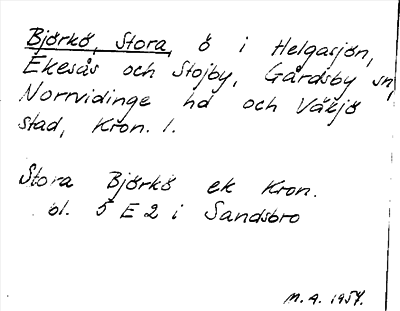 Björkö, Stora, ö i Helgasjön,
Ekesås och Stojby, Gårdsby sn,
Norrvidinge hd och Växjö
stad, Kron. l.
Stora Björkö ek Kron.
bl. 5 E 2 i Sandsbro
M. A. 1954.